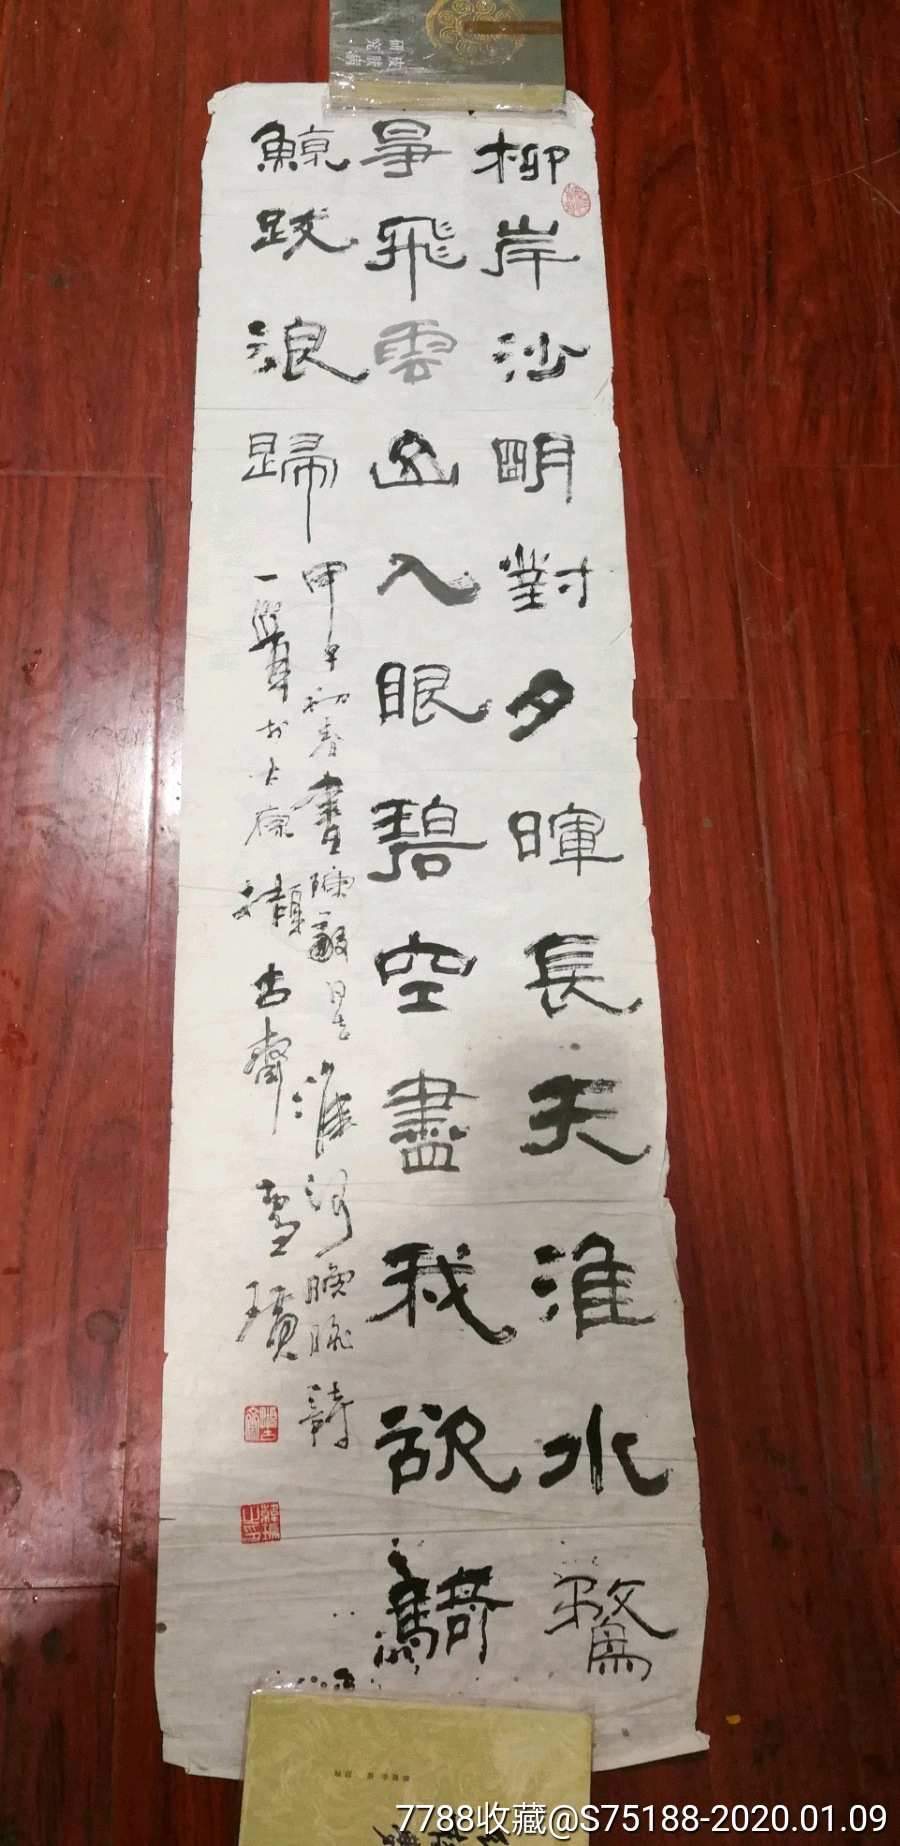 柳岸沙明對夕暉長天淮水鶩
爭飛雲山入眼碧空盡我欲騎
鯨跋浪歸
甲午初春書陳毅同志淮河晚眺詩
一鶴於太原積古齋雪璜
7788收藏@S75188-2020.01.09